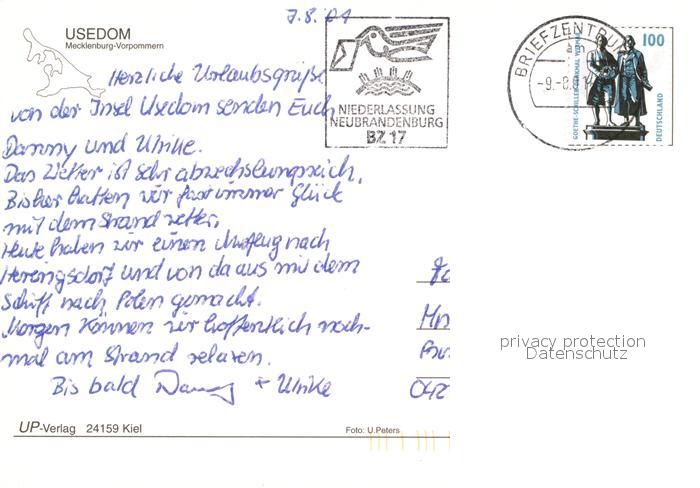 7.8.01
USEDOM
Mecklenburg-Vorpommern
NIEDERLASSUNG
NEUBRANDENBURG
BZ 17
BRIEFZENTRUM
-9.-8.0
GOETHE-SCHILLER-DENKMAL
100
DEUTSCHLAND
Herzliche Urlaubsgrüße
von der Insel Usedom senden Euch
Danny und Ulrike.
Das Wetter ist sehr abwechslungsreich.
Bisher hatten wir fast immer Glück
mit dem Strandwetter.
Heute haben wir einen Ausflug nach
Heringsdorf und von da aus mit dem
Schiff nach Polen gemacht.
Morgen können wir hoffentlich noch-
mal am Strand relaxen.
Bis bald Danny + Ulrike
042
privacy protection
Datenschutz
UP-Verlag 24159 Kiel
Foto: U.Peters